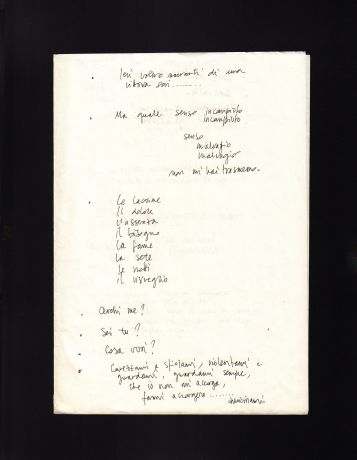 di una
Ma quale senso incompiuto
incompiuto
senso
malvagio
malvagio
non mi hai trasmesso.
Le lacrime
Il dolore
L'assenza
il bisogno
la fame
la sete
le notti
il risveglio
Cerchi me?
Sei tu?
Cosa vuoi?
Carezzami e sfiorami, violentami e
guardami, guardami sempre,
che io non mi accorga,
fammi accorgere